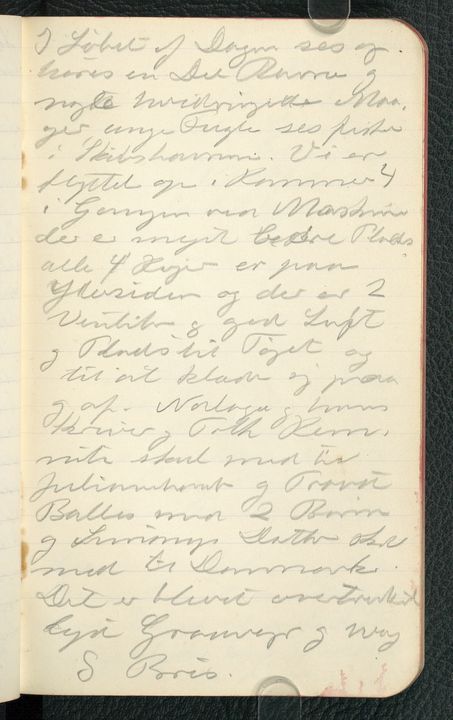 I Løbet af Dagen ses og
høres en Del Ravne og
nogle hvidvingede Maa-
ger unge Fugle ses fiske
i Skibshavnen. Vi er
flyttet op i Kammer 4
i Gangen ved Maskinen
der er meget bedre Plads
alle 4 Køjer er paa
Ydersiden og der er 2
Ventiler og god Luft
og Plads til Tøjet og
til at klæde sig paa
og af. og hans
og Tolk
skal med til
Julianehaab og Provst
Balles med 2 Børn
og Datter skal
med til Danmark.
Det er blevet overtrukket
Lyd Graavejr og svag
S Bris.